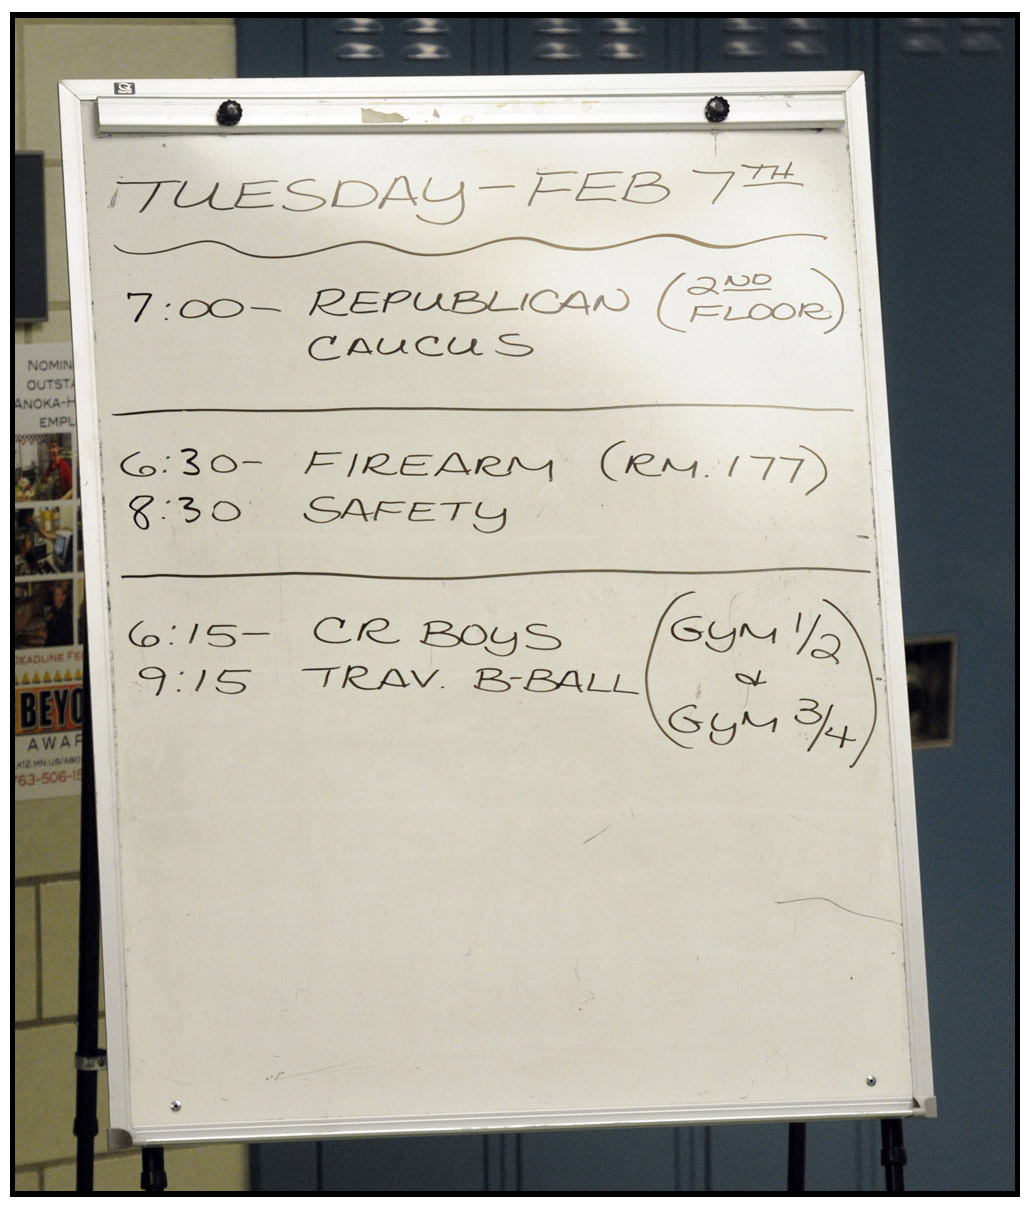 TUESDAY - FEB 7TH
7:00 - REPUBLICAN (2ND FLOOR)
CAUCUS
6:30 - FIREARM (RM. 177)
8:30 SAFETY
6:15 - CR BOYS (GYM 1/2
9:15 TRAV. B-BALL & GYM 3/4)
NOMIN
OUTSTA
ANOKA-H
EMPL
DEADLINE FE
BEYO
AWAR
K12.MN.US/ABO
763-506-15